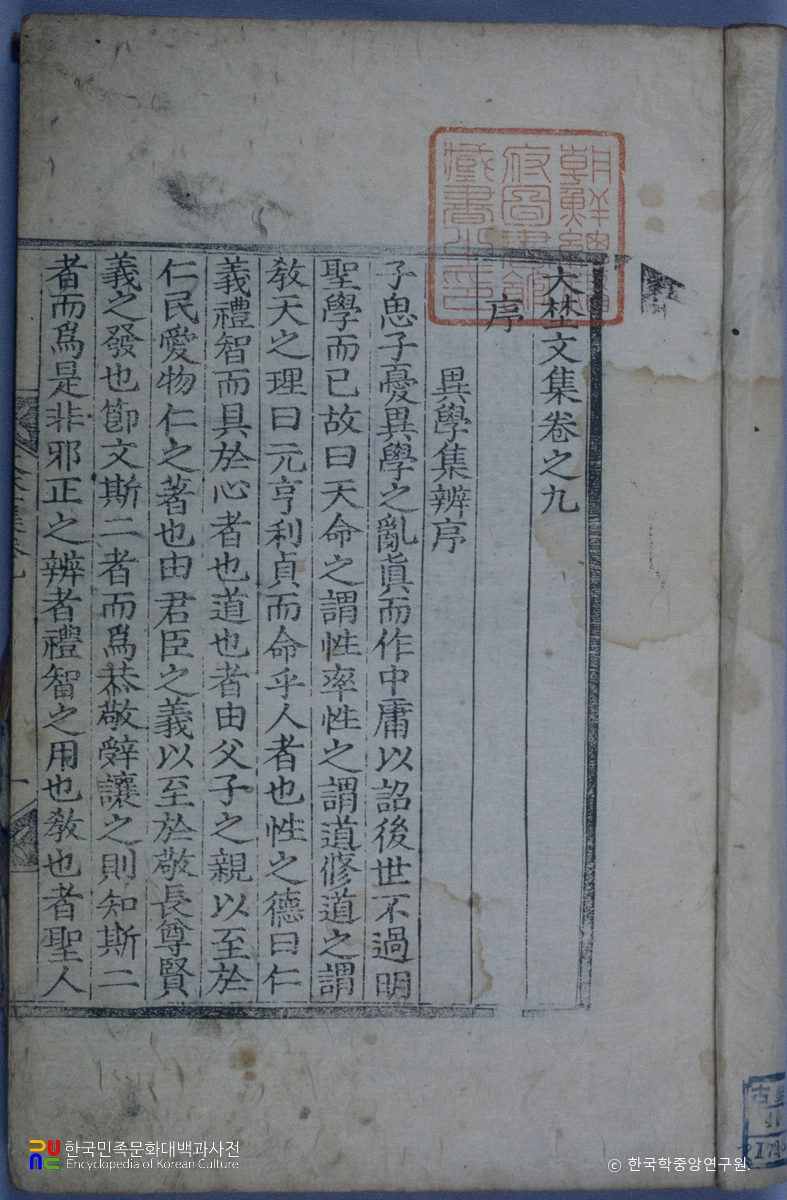 大埜文集卷之九
序
異學集辨序
子思子憂異學之亂眞而作中庸以詔後世不過明
聖學而已故曰天命之謂性率性之謂道修道之謂
敎天之理曰元亨利貞而命乎人者也性之德曰仁
義禮智而具於心者也道也者由父子之親以至於
仁民愛物仁之著也由君臣之義以至於敬長尊賢
義之發也節文斯二者而爲恭敬辭讓之則知斯二
者而爲是非邪正之辨者禮智之用也敎也者聖人
朝鮮總督
府圖書館
藏書之印
古
한국민족문화대백과사전
Encyclopedia of Korean Culture
© 한국학중앙연구원